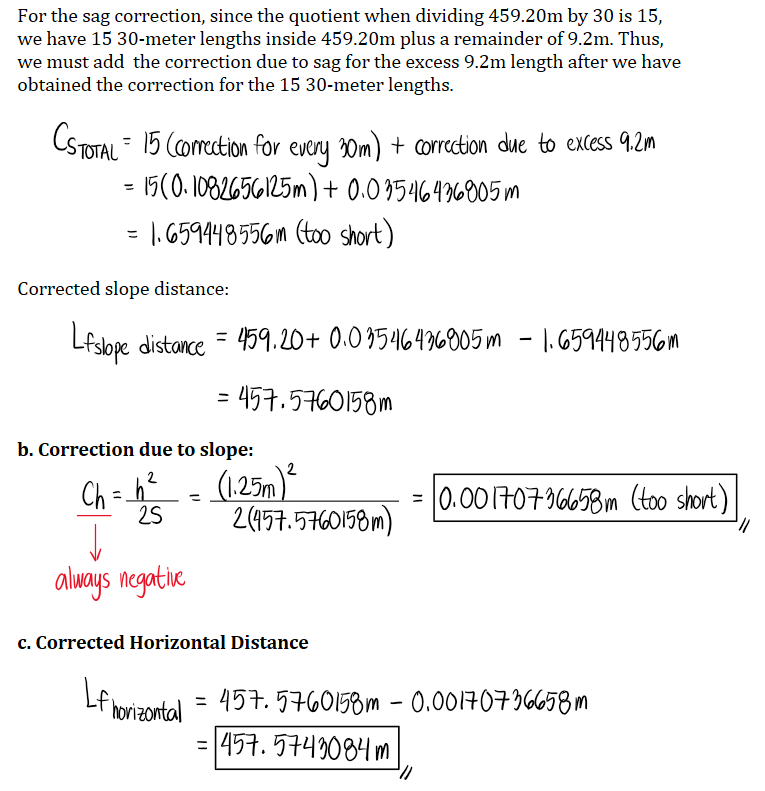 For the sag correction, since the quotient when dividing 459.20m by 30 is 15,
we have 15 30-meter lengths inside 459.20m plus a remainder of 9.2m. Thus,
we must add  the correction due to sag for the excess 9.2m length after we have
obtained the correction for the 15 30-meter lengths.
Cs TOTAL = 15 (correction for every 30m) + correction due to excess 9.2m
= 15(0.1082656125m) + 0.03546436805m
= 1.659448556m (too short)
Corrected slope distance:
Lf slope distance = 459.20 + 0.03546436805m - 1.659448556m
= 457.5760158m
b. Correction due to slope:
Ch = h²/2S = (1.25m)²/2(457.5760158m) = 0.00170736658m (too short)
always negative
c. Corrected Horizontal Distance
Lf horizontal = 457.5760158m - 0.00170736658m
= 457.5743084m